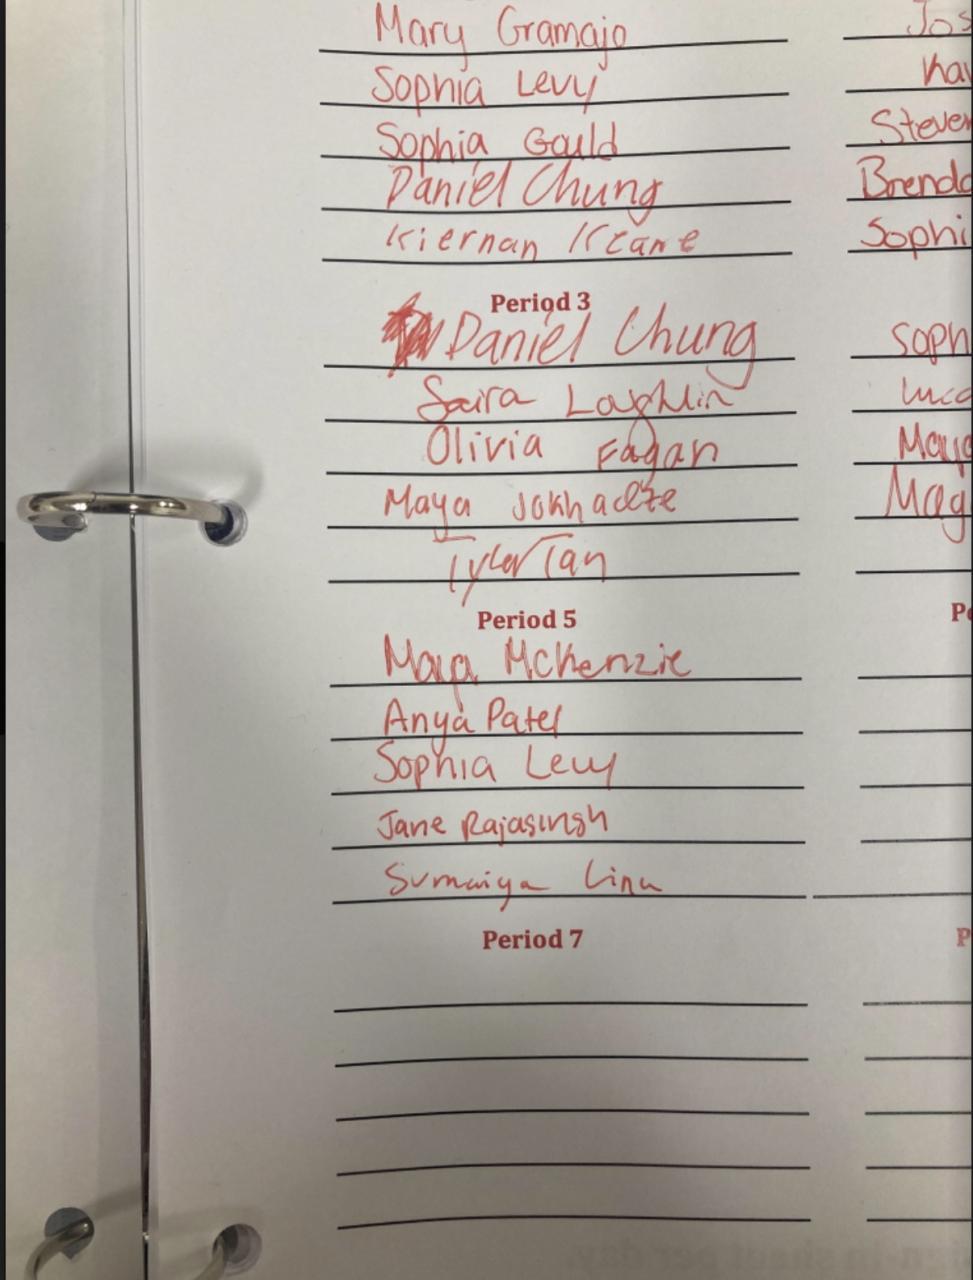 Mary Gramajo
Jos
Sophia Levy
Kay
Sophia Gould
Steven
Daniel Chung
Brenda
Kiernan Keane
Sophi
Period 3
Daniel Chung
Soph
Saira Loughlin
Luca
Olivia Fagan
Maya
Maya Jokhadze
Mag
Tyler Tan
Period 5
Maya McKenzie
Anya Patel
Sophia Levy
Jane Rajasingh
Sumaiya Lina
Period 7
P
sign-in sheet per day.